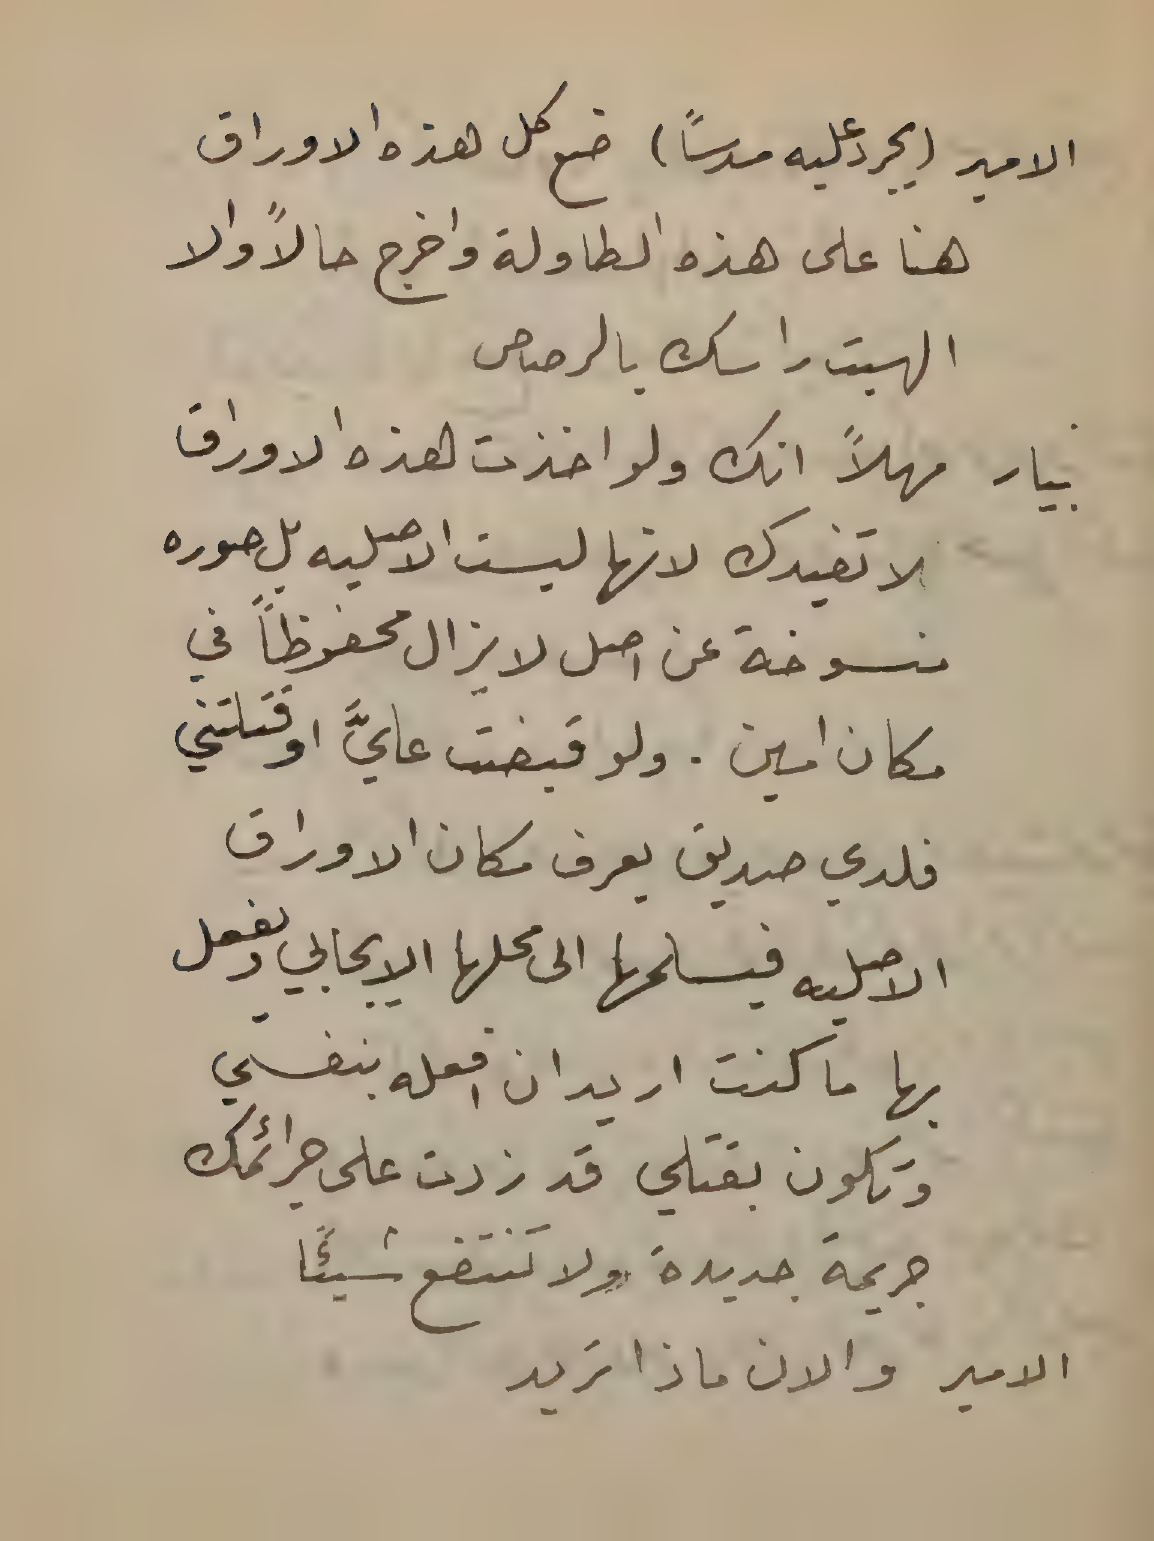 الامير (يجرد عليه مدسًا) ضع كل هذه الاوراق
هنا على هذه الطاولة واخرج حالاً والا
الهبت راسك بالرصاص
بيار مهلاً انك ولو اخذت هذه الاوراق
لا تفيدك لانها ليست الاصليه بل صوره
منسوخة عن اصل لا يزال محفوظاً في
مكان امين . ولو قبضت عليَّ او قتلتني
فلدي صديق يعرف مكان الاوراق
الاصليه فيسلمها الى محلها الايجابي ويفعل
بها ما كنت اريد ان افعله بنفسي
وتكون بقتلي قد زدت على جرائمك
جريمة جديدة ولا تنتفع شيئًا
الامير والان ماذا تريد